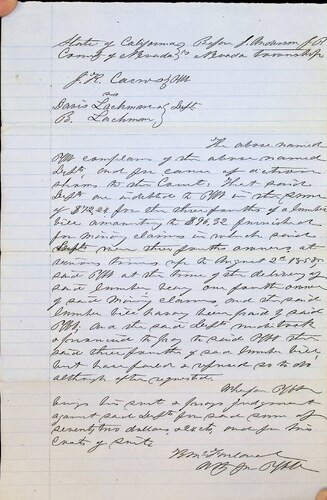 State of California } Before J. Anderson J.P.
County of Nevada } ss Nevada Township
J. R. Plff
vs
Davis Lachman & } Defts
B. Lachman }
The above named
Plff complains of the above named
Defts, and for cause of action
shows to the Court, that said
Defts are indebted to Plff in the sum
of $72,24 for three fourths of a lumber
bill amounting to $96,32 furnished
for mining claims in which said
Defts were three fourths owners at
various times up to August 2d 1858
said Plff at the time of the delivery of
said lumber being one fourth owner
of said mining claims, and the said
lumber bill having been paid by said
Plff, and the said Defts undertook
& promised to pay to said Plff the
said three fourths of said lumber bill
but have failed & refused so to do
although often requested
Wherefore Plff
brings his suit & prays judgment
against said Defts for said sum of
seventy two dollars 24 cts, and for his
costs of suit
Wm
Atty for Plff